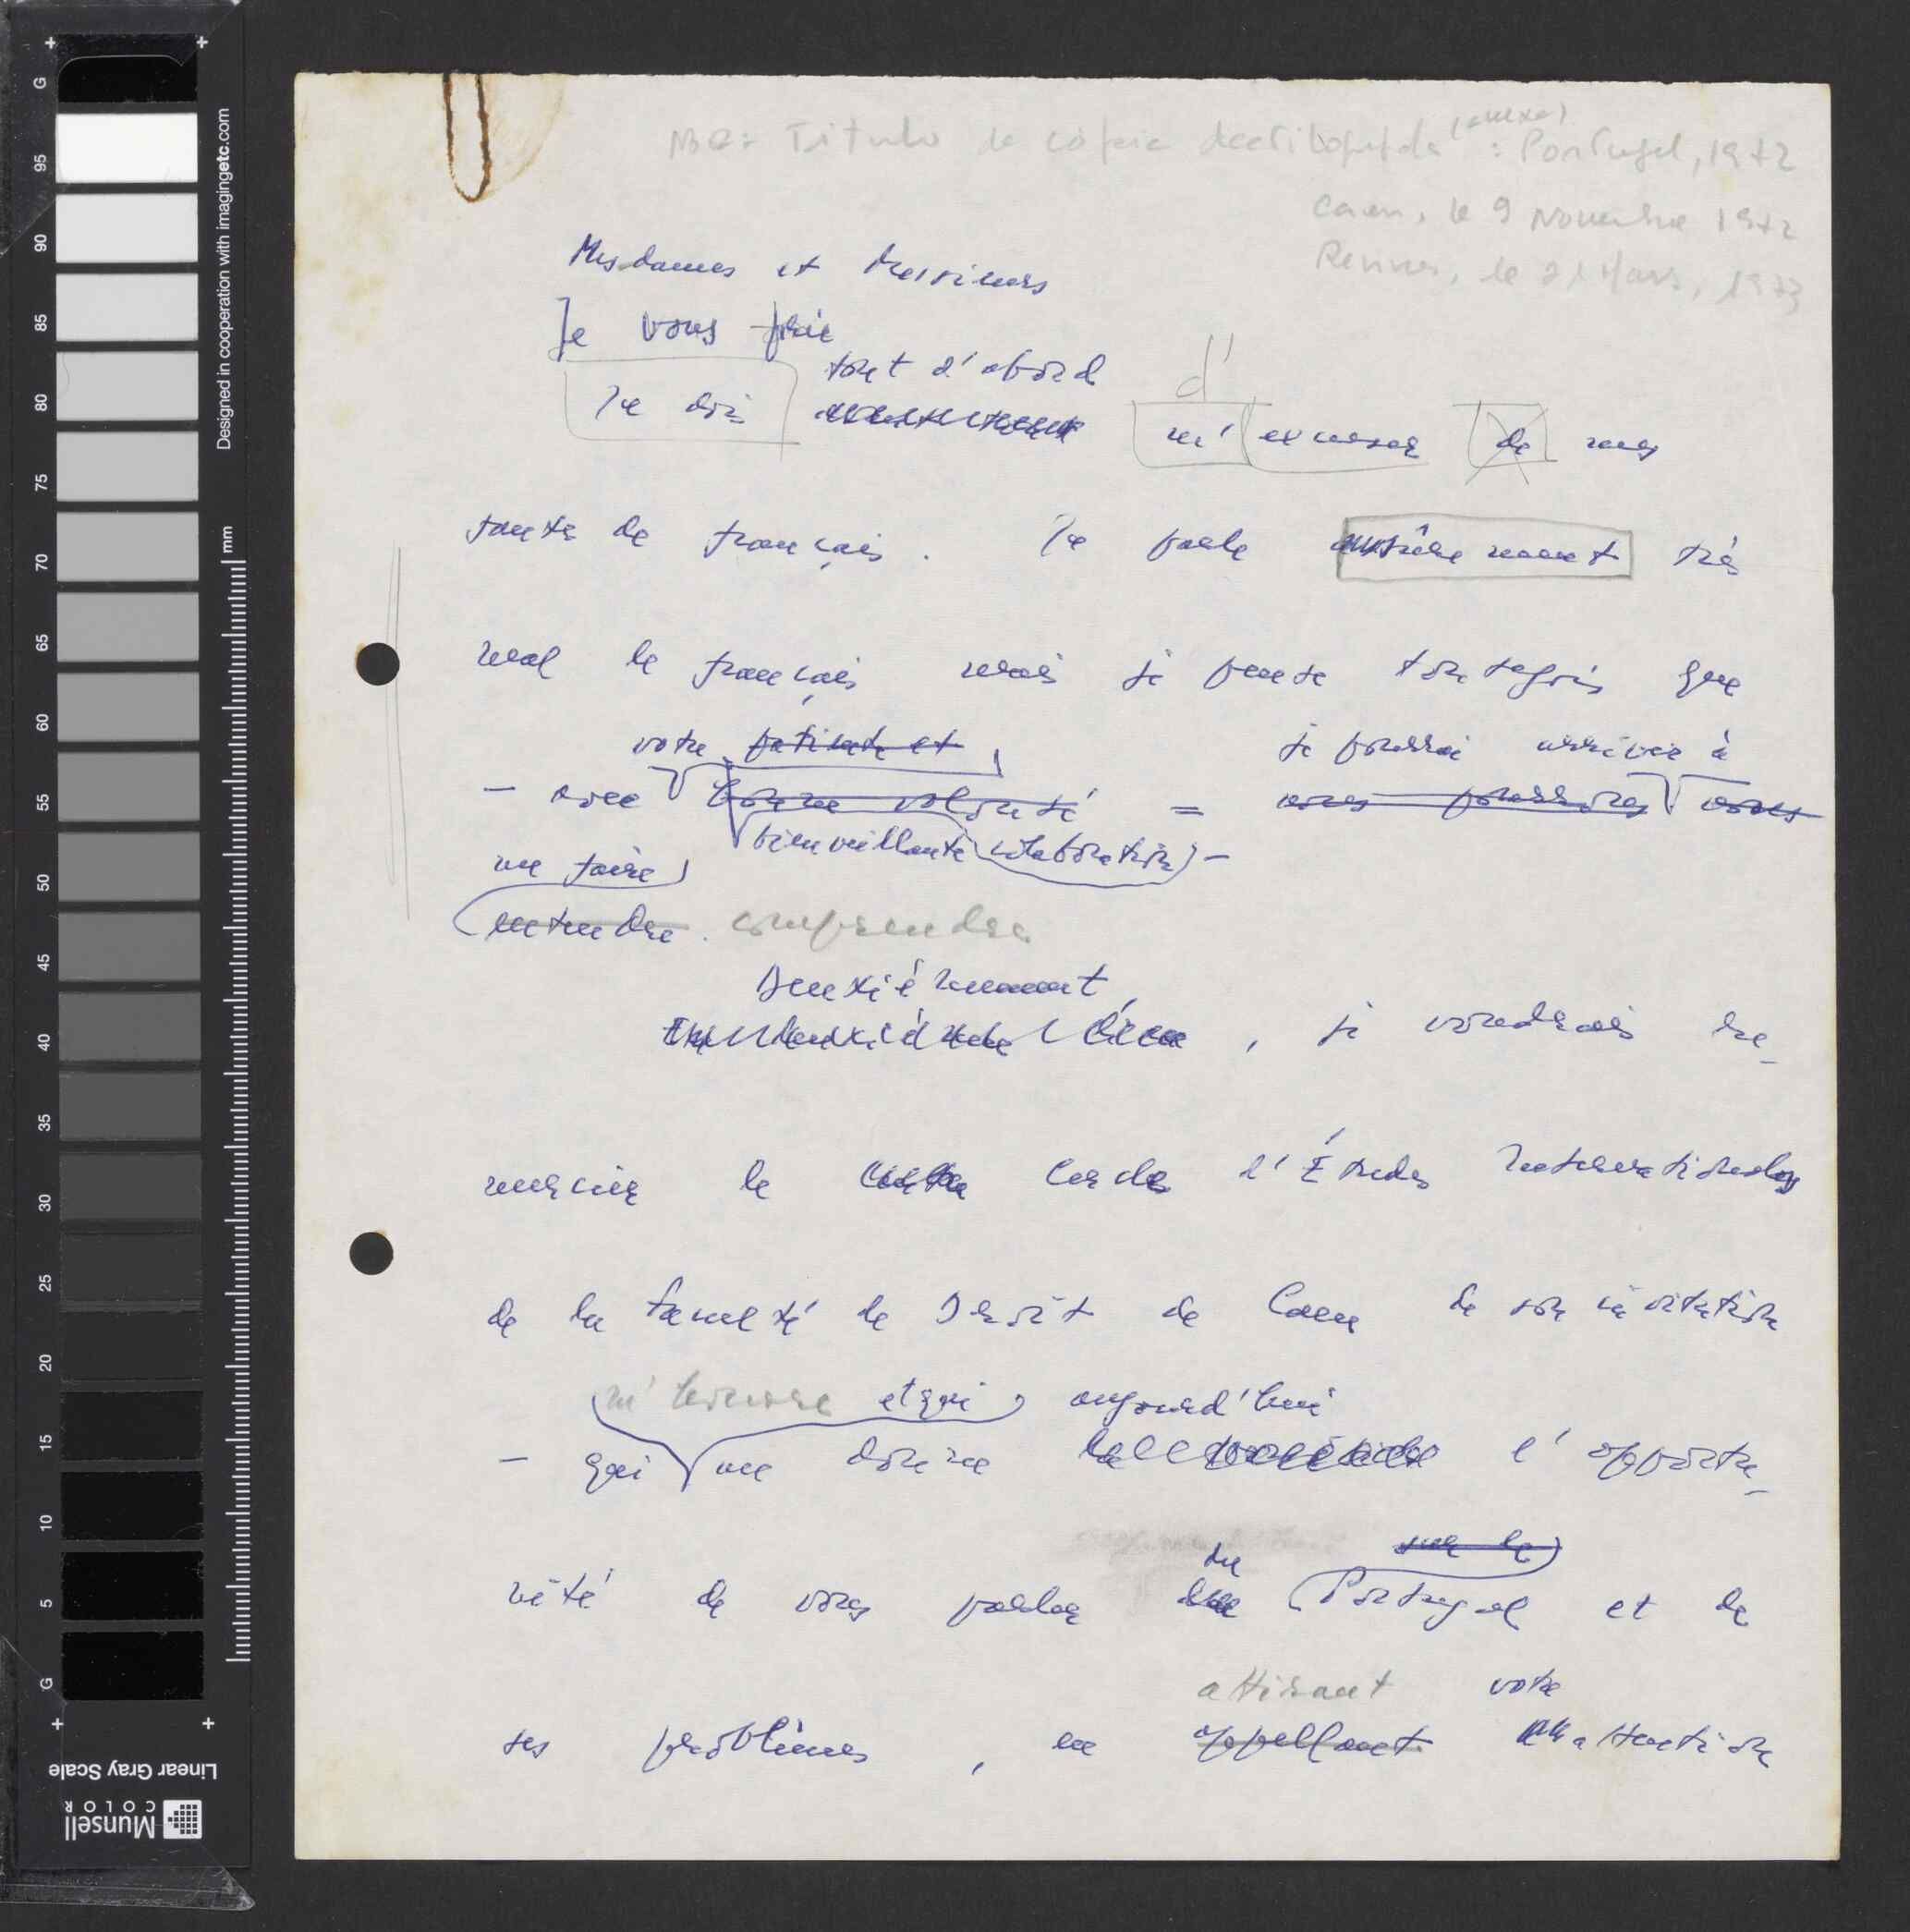 NB: Titulo da cópia dactilografada (anexa): Portugal, 1972
Caen, le 9 Novembre 1972
Rennes, le 21 Mars, 1973
Mesdames et Messieurs
Je vous prie
tout d'abord
d'
Je dois m' excuser de mes
faute de français. Je parle très
mal le français mais je pense toutefois que
votre patiente et je pourrai arriver à
- avec bonne volonté = vous pourrez vous
bienveillante colaboration -
me faire
entendre. comprendre
Deuxièmement
, je voudrais re-
mercier le Cercle d'Études Internationales
de la Faculté de Droit de Caen de son invitation
m'honore et qui aujourd'hui
- qui me donne l'opportu-
sur le
du
nité de vous parler Portugal et de
attirant votre
ses problèmes, en appellant attention
G
95
90
85
80
75
70
65
60
55
50
45
40
35
30
25
20
15
10
5
G
Designed in cooperation with imagingetc.com
mm
Linear Gray Scale
Munsell
COLOR